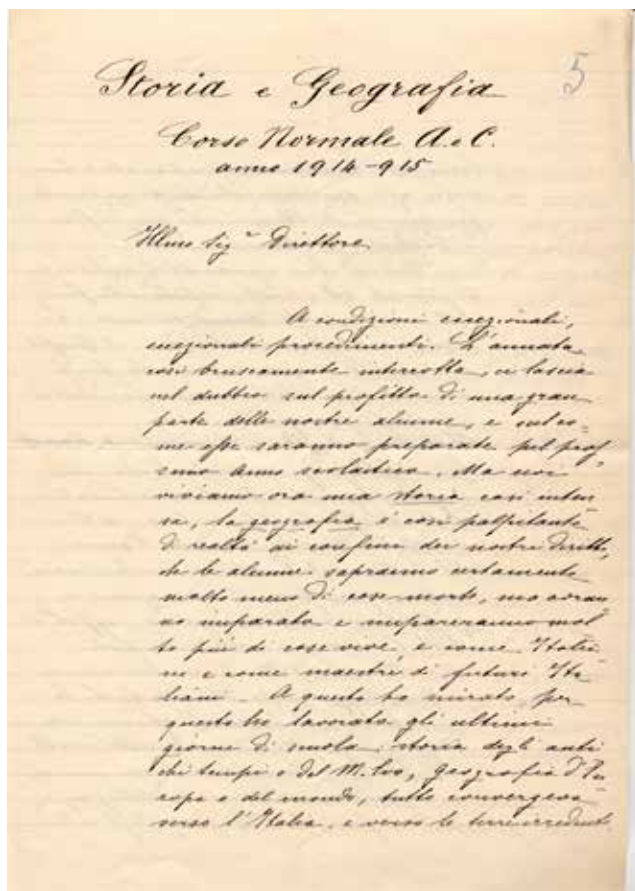 5
Storia e Geografia
Corso Normale A. e C.
anno 1914-915
Illmo Sigr Direttore
A condizioni eccezionali,
eccezionali procedimenti. L'annata
così bruscamente interrotta, ci lascia
nel dubbio sul profitto di una gran
parte delle nostre alunne, e sul co-
me esse saranno preparate pel pros-
simo anno scolastico. Ma noi
viviamo ora una storia così inten
sa, la geografia è così palpitante
di realtà ai confini dei nostri diritti,
che le alunne sapranno certamente
molto meno di cose morte, ma avran
no imparato e impareranno mol
to più di cose vive, e come Italia-
ni e come maestri di futuri Ita
liani. A questo ho mirato, per
questo ho lavorato gli ultimi
giorni di scuola: storia degli anti
chi tempi o del M. Evo, geografia d'Eu-
ropa o del mondo, tutto convergeva
verso l'Italia, e verso le terre irredente.